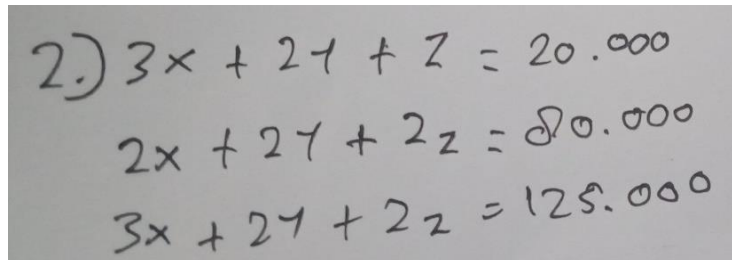 2.) 3x + 2y + z = 20.000
2x + 2y + 2z = 80.000
3x + 2y + 2z = 125.000